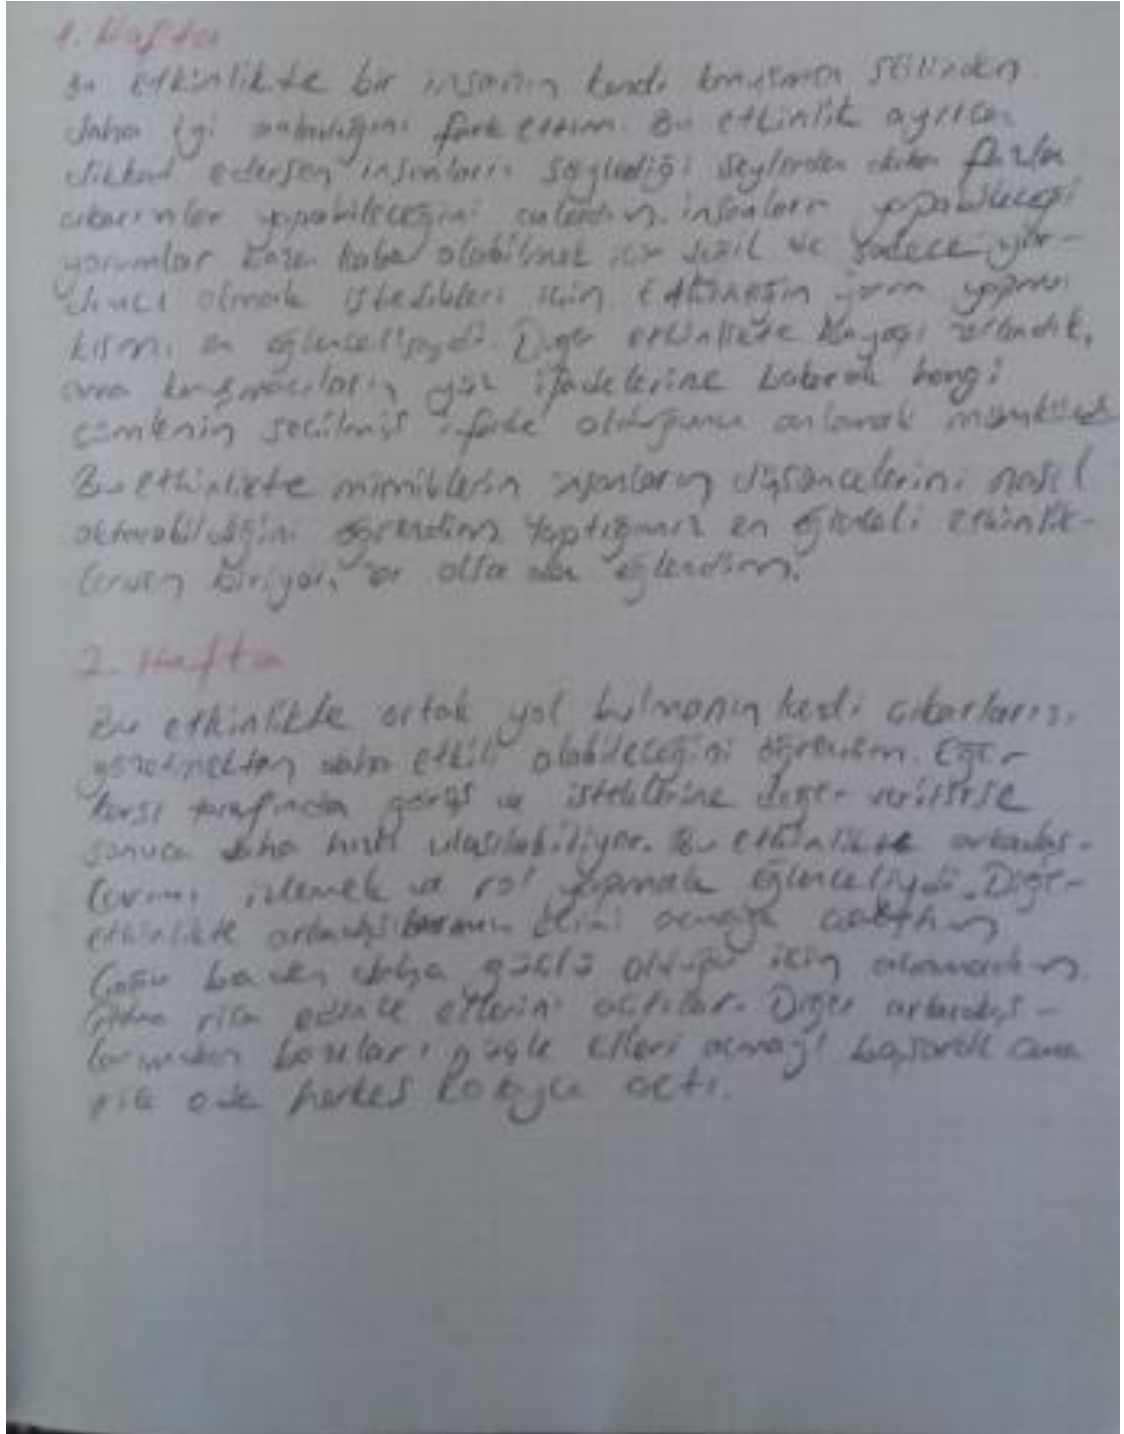 1. Hafta
Bu etkinlikte bir insanın kendi konuşma stilinden
daha iyi anladığını fark ettim. Bu etkinlik ayrıca
dikkat edersen insanların söylediği şeylerden daha fazla
çıkarımlar yapabileceğini anladım. insanların yapabileceği
yorumlar bazen kaba olabilmek için değil ve sadece yar-
dımcı olmak istedikleri için. Etkinliğin yorum yapma
kısmı en eğlenceliydi. Diğer etkinlikte zorlandık,
ama konuşmacıların yüz ifadelerine bakarak hangi
cümlenin seçilmiş ifade olduğunu anlamak mümkündü
Bu etkinlikte mimiklerin insanların düşüncelerini nasıl
aktarabileceğini öğrendim. Yaptığımız en etkinlik-
lerden biriydi, olsa da eğlendim.
2. Hafta
Bu etkinlikte ortak yol bulmanın kendi çıkarlarını
gözetmekten daha etkili olabileceğini öğrendim. Eğer
karşı tarafında görüş ve isteklerine değer verilirse
sonuca daha hızlı ulaşılabiliyor. Bu etkinlikte arkadaş-
larımı izlemek ve rol yapmak eğlenceliydi. Diğer
etkinlikte arkadaşlarımın elini açmaya çalıştım
Çoğu benden daha güçlü olduğu için açamadım.
Ama rica edince ellerini açtılar. Diğer arkadaş-
larımdan bazıları güçle elleri açmayı başardı ama
rica herkes kolayca açtı.